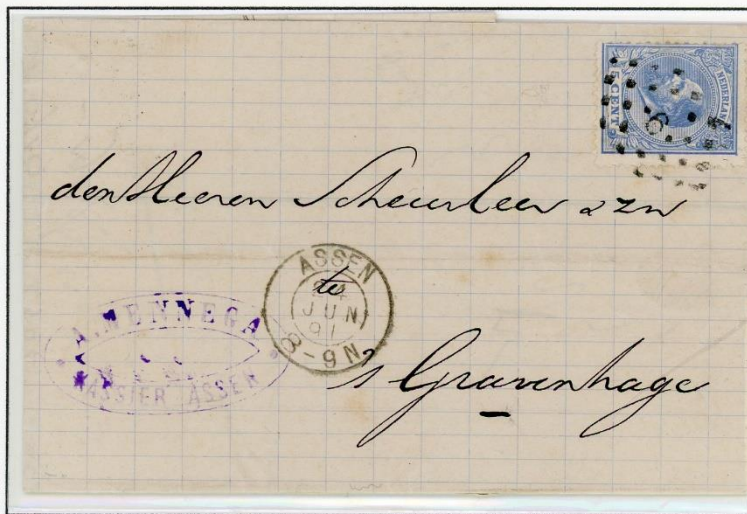 NEDERLAND
5 CENT
8
den Heeren Scheurleer & Zn
ASSEN
te
JUN
91
8-9N
A. MENNEGA
KASSIER ASSEN
's Gravenhage